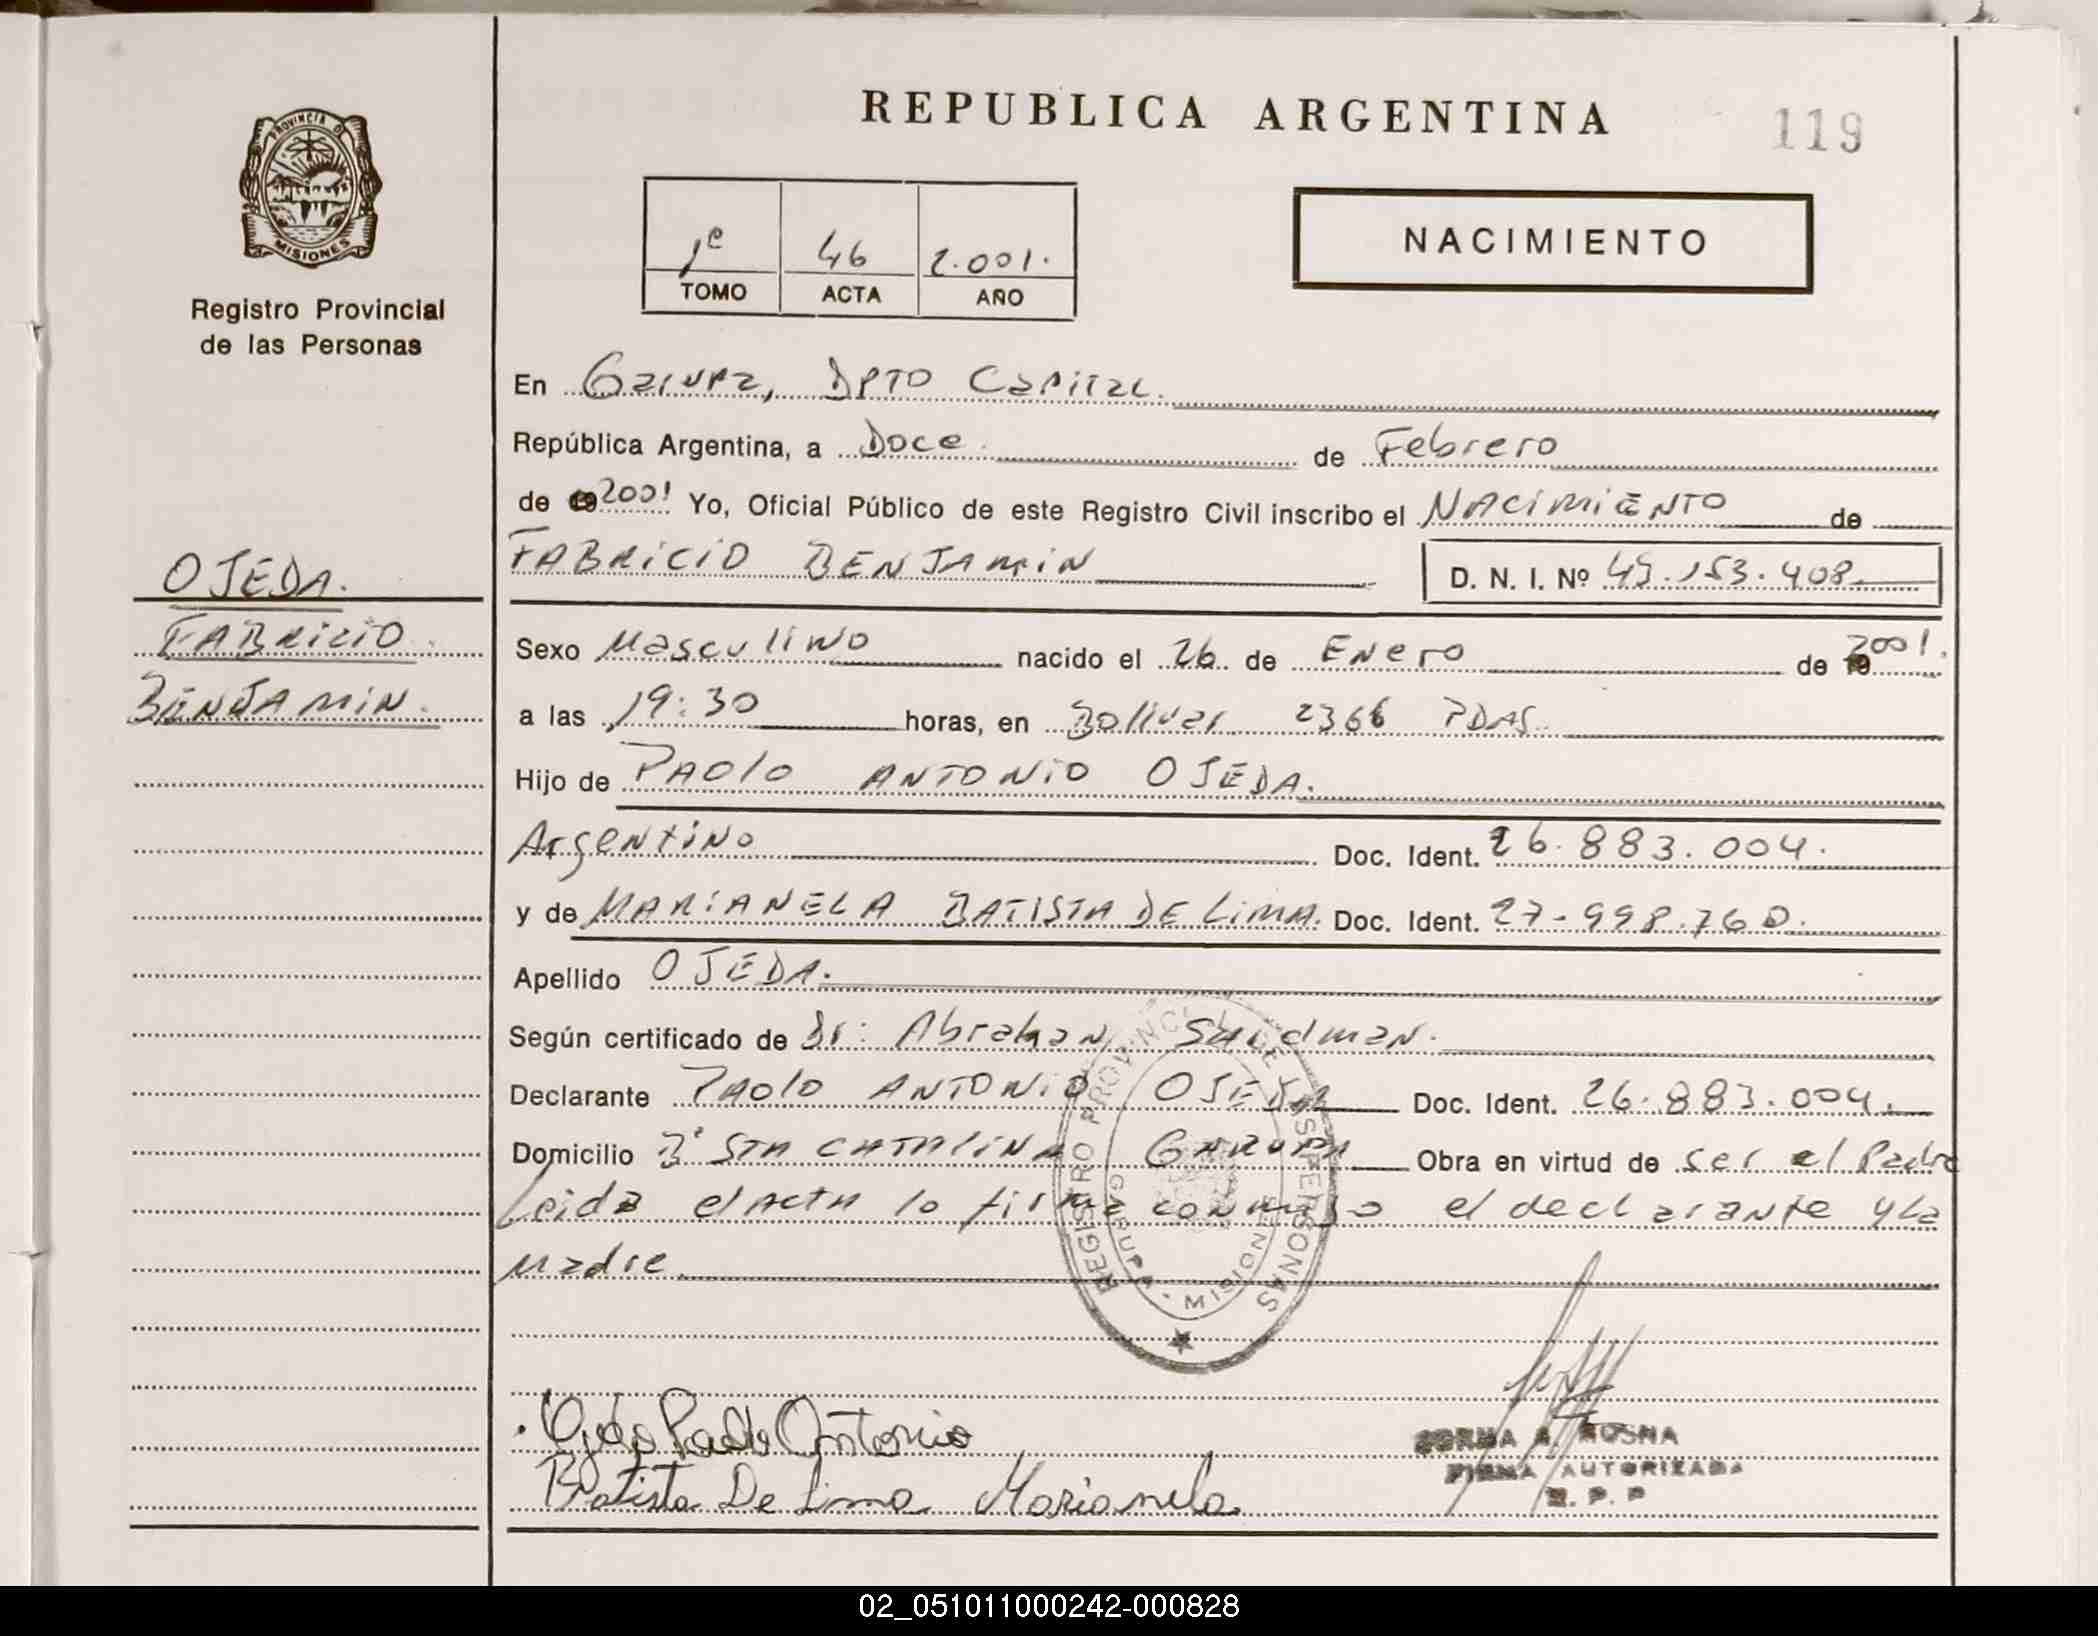 REPUBLICA ARGENTINA
119
PROVINCIA DE
MISIONES
Registro Provincial
de las Personas
1º 46 2.001.
TOMO ACTA AÑO
NACIMIENTO
En Garupa, DPTO Capital.
República Argentina, a Doce. de Febrero
de 19 2001 Yo, Oficial Público de este Registro Civil inscribo el NACIMIENTO de
FABRICIO BENJAMIN D. N. I. Nº 43.153.408.
OJEDA.
FABRICIO.
BENJAMIN.
Sexo Masculino nacido el 26 de Enero de 19 2001.
a las 19:30 horas, en Bolivar 2366 PDAS.
Hijo de PAOLO ANTONIO OJEDA.
Argentino Doc. Ident. 26.883.004.
y de MARIANELA BATISTA DE LIMA. Doc. Ident. 27-998.760.
Apellido OJEDA.
Según certificado de Dr: Abrahan
Declarante PAOLO ANTONIO OJEDA Doc. Ident. 26.883.004.
Domicilio Bº STA CATALINA GARUPA Obra en virtud de ser el Padre
Leida el acta lo firma conmigo el declarante y la
madre.
REGISTRO PROVINCIAL DE LAS PERSONAS
GARUPA - MISIONES
Ojeda Paolo Antonio
Batista De Lima Marianela
A. ROSNA
FIRMA AUTORIZADA
R. P. P
02_051011000242-000828